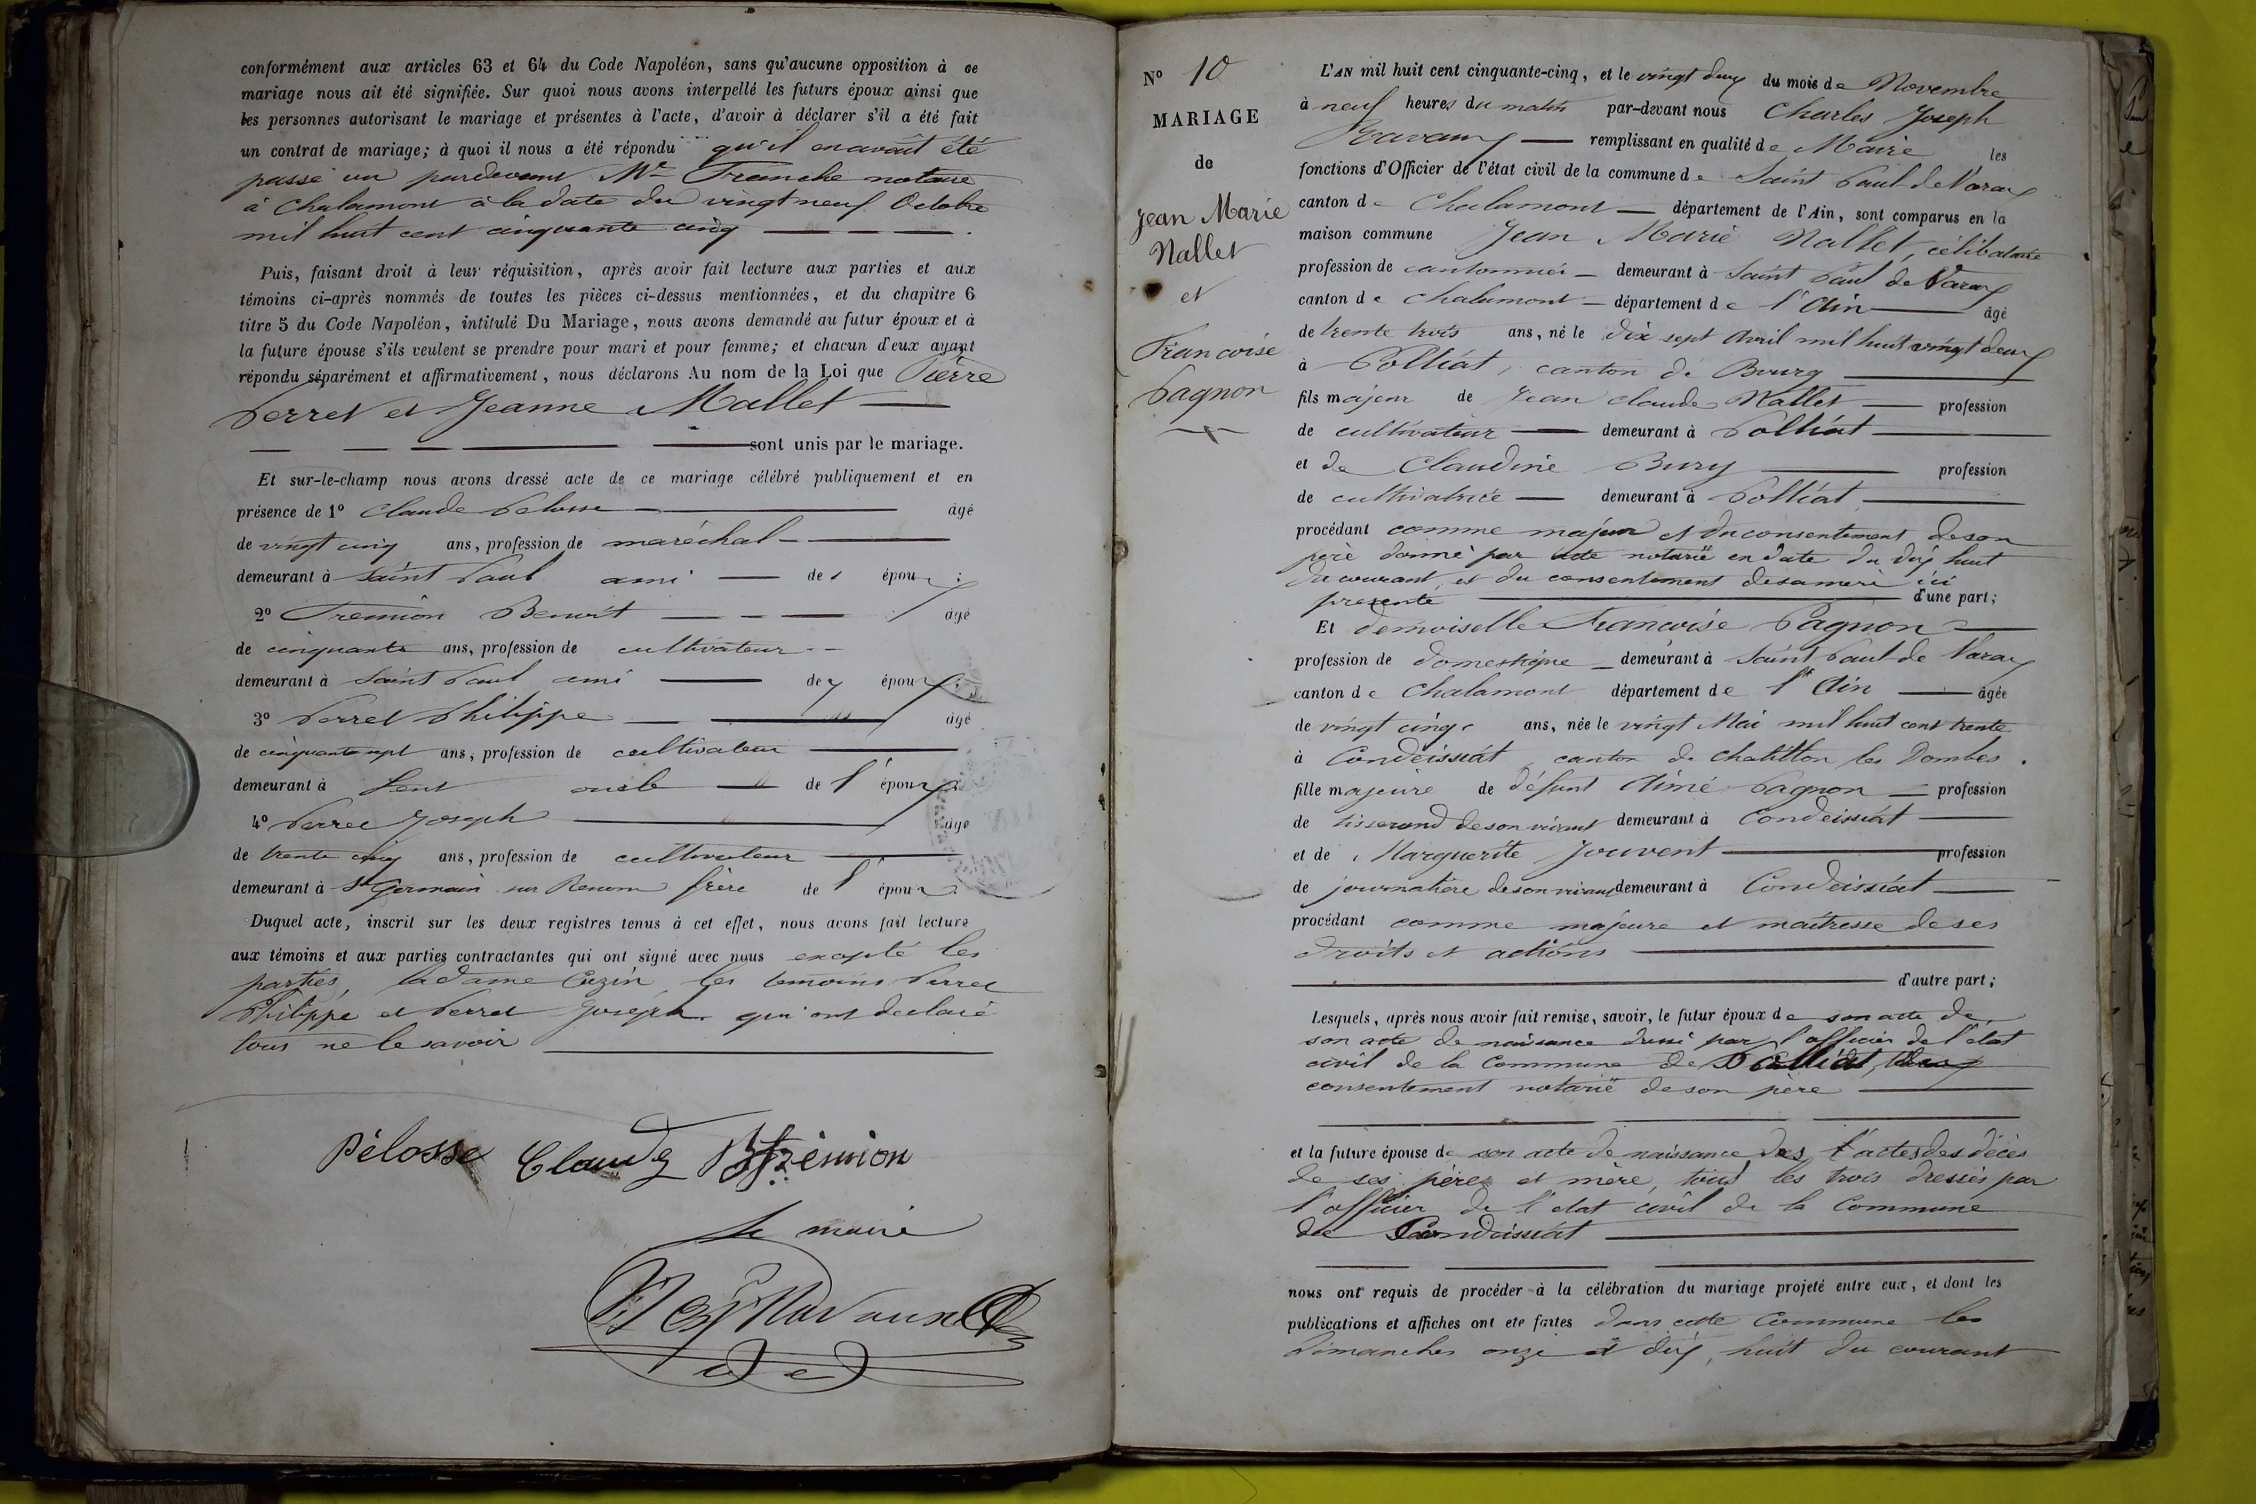 conformément aux articles 63 et 64 du Code Napoléon, sans qu'aucune opposition à ce
mariage nous ait été signifiée. Sur quoi nous avons interpellé les futurs époux ainsi que
les personnes autorisant le mariage et présentes à l'acte, d'avoir à déclarer s'il a été fait
un contrat de mariage; à quoi il nous a été répondu qu'il en avait été
passé un pardevant Me Franche notaire
à Chalamont à la date du vingt neuf Octobre
mil huit cent cinquante cinq
Puis, faisant droit à leur réquisition, après avoir fait lecture aux parties et aux
témoins ci-après nommés de toutes les pièces ci-dessus mentionnées, et du chapitre 6
titre 5 du Code Napoléon, intitulé Du Mariage, nous avons demandé au futur époux et à
la future épouse s'ils veulent se prendre pour mari et pour femme; et chacun d'eux ayant
répondu séparément et affirmativement, nous déclarons Au nom de la Loi que Pierre
Perret et Jeanne Mallet
sont unis par le mariage.
Et sur-le-champ nous avons dressé acte de ce mariage célébré publiquement et en
présence de 1° Claude Pelosse âgé
de vingt cinq ans, profession de maréchal
demeurant à Saint Paul ami des époux;
2° Fremion Benoit âgé
de cinquante ans, profession de cultivateur
demeurant à Saint Paul ami des époux;
3° Perret Philippe âgé
de cinquante sept ans, profession de cultivateur
demeurant à Lent oncle de l'époux;
4° Perret Joseph âgé
de trente cinq ans, profession de cultivateur
demeurant à St Germain sur Renom frère de l'époux
Duquel acte, inscrit sur les deux registres tenus à cet effet, nous avons fait lecture
aux témoins et aux parties contractantes qui ont signé avec nous excepté les
parties, la dame Cuzin, les temoins Perret
Philippe et Perret Joseph qui ont declaré
tous ne le savoir
Pélosse Claude B Frémion
le maire
N° 10
MARIAGE
de
Jean Marie
Nallet
et
Francoise
Pagnon
L'AN mil huit cent cinquante-cinq, et le vingt deux du mois de Novembre
à neuf heures du matin par-devant nous Charles Joseph
remplissant en qualité de Maire les
fonctions d'Officier de l'état civil de la commune de Saint Paul de Varax
canton de Chalamont département de l'Ain, sont comparus en la
maison commune Jean Marie Nallet, célibataire
profession de cantonnier demeurant à Saint Paul de Varax
canton de Chalamont département de l'Ain âgé
de trente trois ans, né le dix sept Avril mil huit vingt deux
à Polliat, canton de Bourg
fils majeur de Jean Claude Nallet profession
de cultivateur demeurant à Polliat
et de Claudine Bury profession
de cultivatrice demeurant à Polliat
procédant comme majeur et du consentement de son
père donné par acte notarié en date du dix huit
du courant, et du consentement de sa mère ici
presente d'une part;
Et demoiselle Francoise Pagnon
profession de domestique demeurant à Saint Paul de Varax
canton de Chalamont département de l'Ain âgée
de vingt cinq ans, née le vingt Mai mil huit cent trente
à Condeissiat, canton de Chatillon les Dombes.
fille majeure de défunt Aimé Pagnon profession
de tisserand de son vivant demeurant à Condeissiat
et de Marguerite Jouvent profession
de journalière de son vivant demeurant à Condeissiat
procédant comme majeure et maitresse de ses
droits et actions
d'autre part;
Lesquels, après nous avoir fait remise, savoir, le futur époux de son acte de
son acte de naissance dressé par l'officier de l'état
civil de la Commune de Polliat,
consentement notarié de son père
et la future épouse de son acte de naissance des actes des décès
de ses père et mère, tous les trois dressés par
l'officier de l'état civil de la Commune
de Condeissiat
nous ont requis de procéder à la célébration du mariage projeté entre eux, et dont les
publications et affiches ont été faites dans cette Commune les
dimanches onze et dix huit du courant